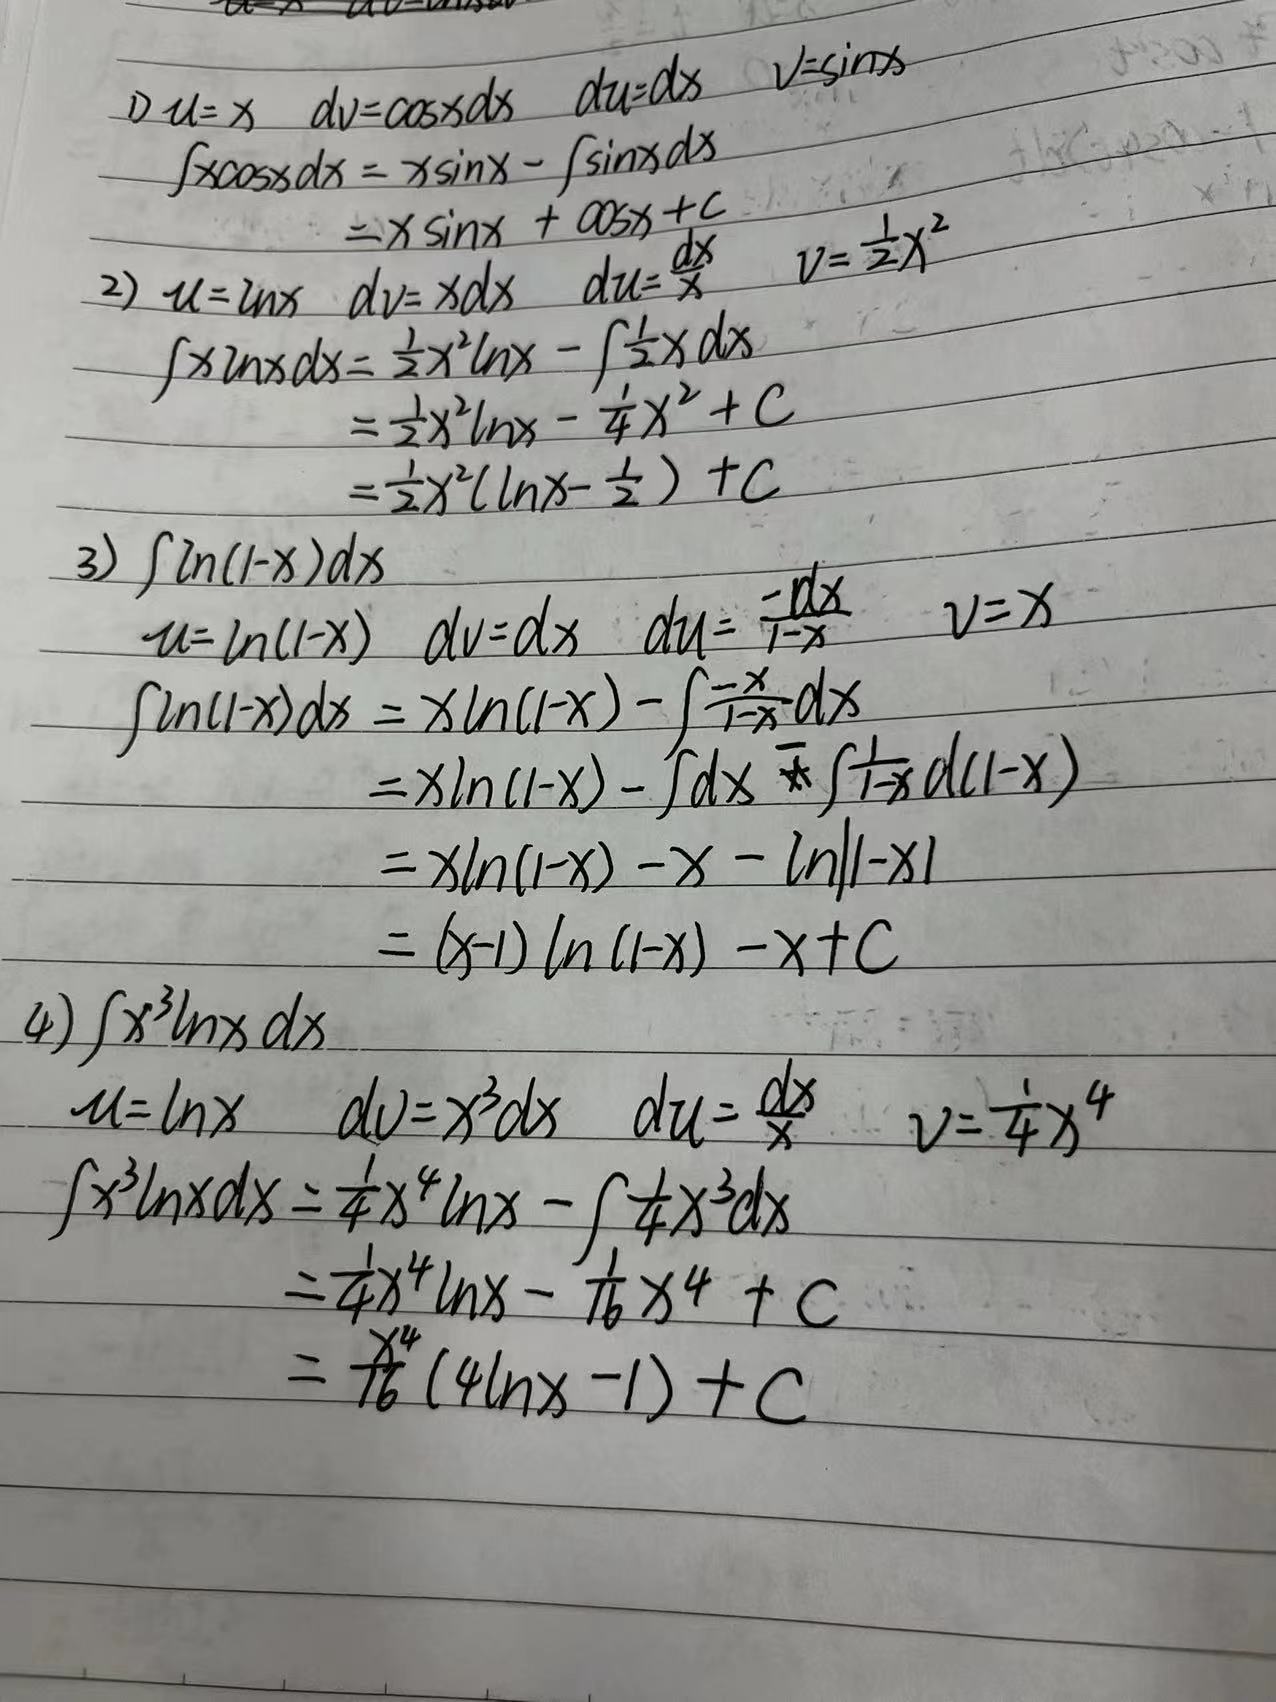 1) u=x dv=cosxdx du=dx v=sinx
∫xcosxdx = xsinx - ∫sinxdx
= xsinx + cosx + C
2) u=lnx dv=xdx du=dx/x v=1/2x²
∫xlnxdx = 1/2x²lnx - ∫1/2xdx
= 1/2x²lnx - 1/4x² + C
= 1/2x²(lnx - 1/2) + C
3) ∫ln(1-x)dx
u=ln(1-x) dv=dx du=-dx/1-x v=x
∫ln(1-x)dx = xln(1-x) - ∫-x/1-x dx
= xln(1-x) - ∫dx - ∫1/1-x d(1-x)
= xln(1-x) - x - ln|1-x|
= (x-1)ln(1-x) - x + C
4) ∫x³lnxdx
u=lnx dv=x³dx du=dx/x v=1/4x⁴
∫x³lnxdx = 1/4x⁴lnx - ∫1/4x³dx
= 1/4x⁴lnx - 1/16x⁴ + C
= x⁴/16(4lnx - 1) + C